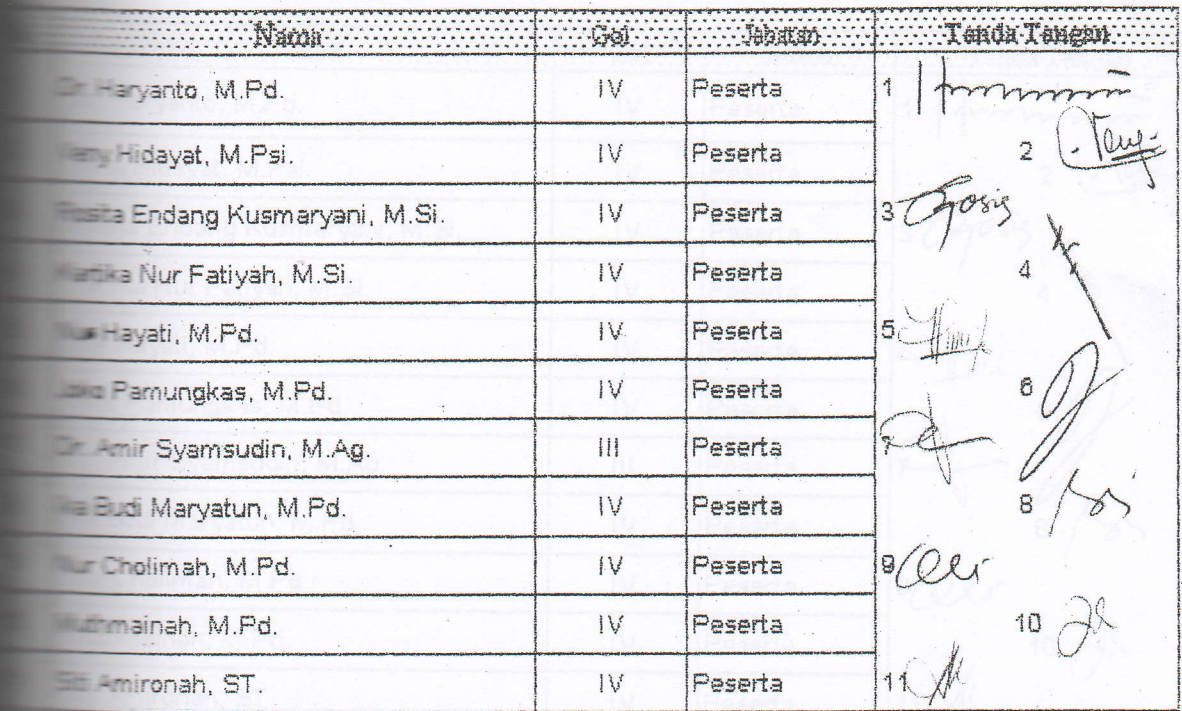 Nama Gol Jabatan Tanda Tangan
Dr. Haryanto, M.Pd. IV Peserta 1
Hidayat, M.Psi. IV Peserta 2
Rosita Endang Kusmaryani, M.Si. IV Peserta 3 Rosita
Kartika Nur Fatiyah, M.Si. IV Peserta 4
Nur Hayati, M.Pd. IV Peserta 5
Joko Pamungkas, M.Pd. IV Peserta 6
Dr. Amir Syamsudin, M.Ag. III Peserta 7
Ika Budi Maryatun, M.Pd. IV Peserta 8
Nur Cholimah, M.Pd. IV Peserta 9
Muthmainah, M.Pd. IV Peserta 10
Siti Amironah, ST. IV Peserta 11